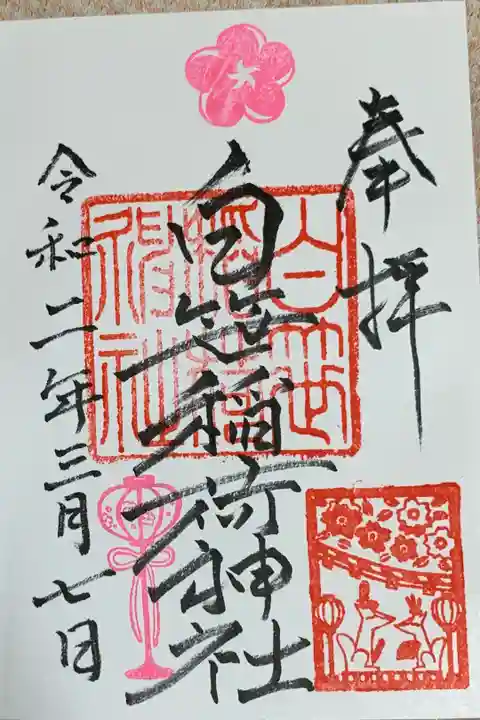 奉拝
白笹稲荷神社
白笹稲荷神社
令和二年三月七日